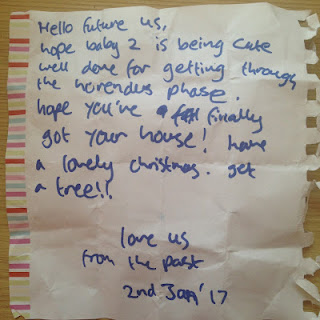 Hello future us,
hope baby 2 is being cute
well done for getting through
the horrendus phase.
hope you've finally
got your house! have
a lovely christmas. get
a tree!!
love us
from the past
2nd Jan '17